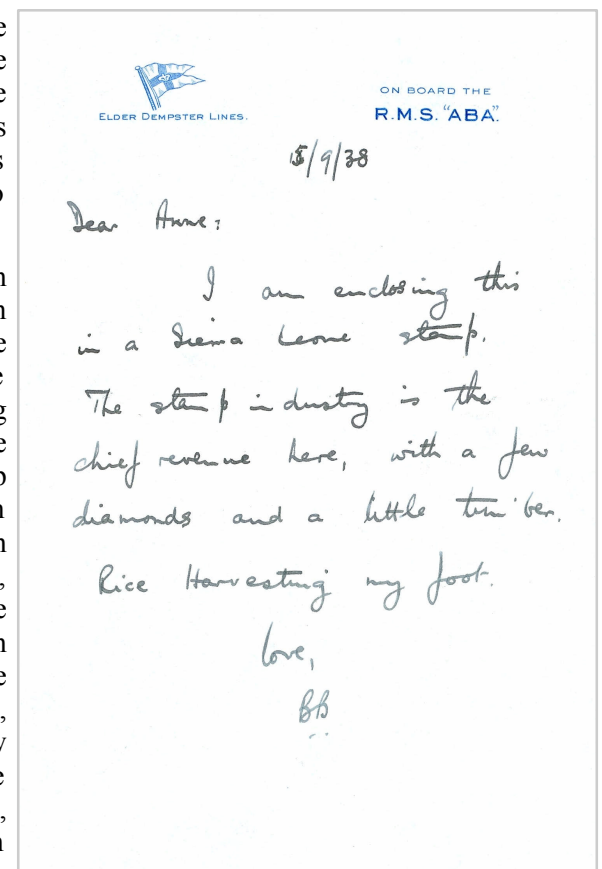 ELDER DEMPSTER LINES.
ON BOARD THE
R.M.S. "ABA".
/9/38
Dear Anne:
I am enclosing this
in a Sierra Leone stamp.
The stamp industry is the
chief revenue here, with a few
diamonds and a little timber.
Rice Harvesting my foot.
love,
BB